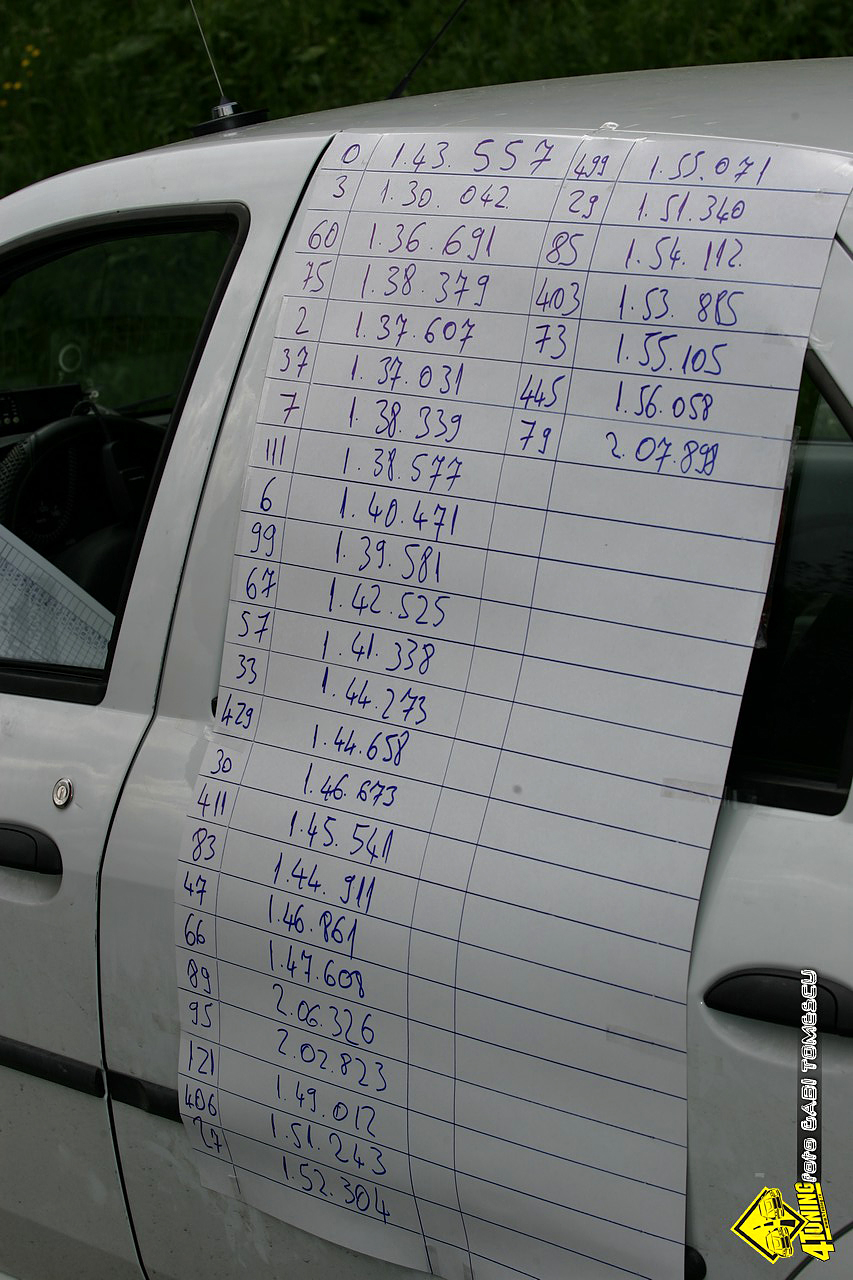 0 1.43.557
3 1.30.042
60 1.36.691
75 1.38.379
2 1.37.607
37 1.37.031
7 1.38.339
111 1.38.577
6 1.40.471
99 1.39.581
67 1.42.525
57 1.41.338
33 1.44.273
429 1.44.658
30 1.46.673
411 1.45.541
83 1.44.911
47 1.46.861
66 1.47.608
89 2.06.326
95 2.02.823
121 1.49.012
406 1.51.243
27 1.52.304
499 1.55.071
29 1.51.340
85 1.54.112
403 1.53.885
73 1.55.105
445 1.56.058
79 2.07.898
foto GABI TOMESCU
4TUNING